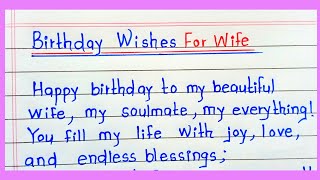 Birthday Wishes For Wife
Happy birthday to my beautiful
wife, my soulmate, my everything!
You fill my life with joy, love,
and endless blessings;